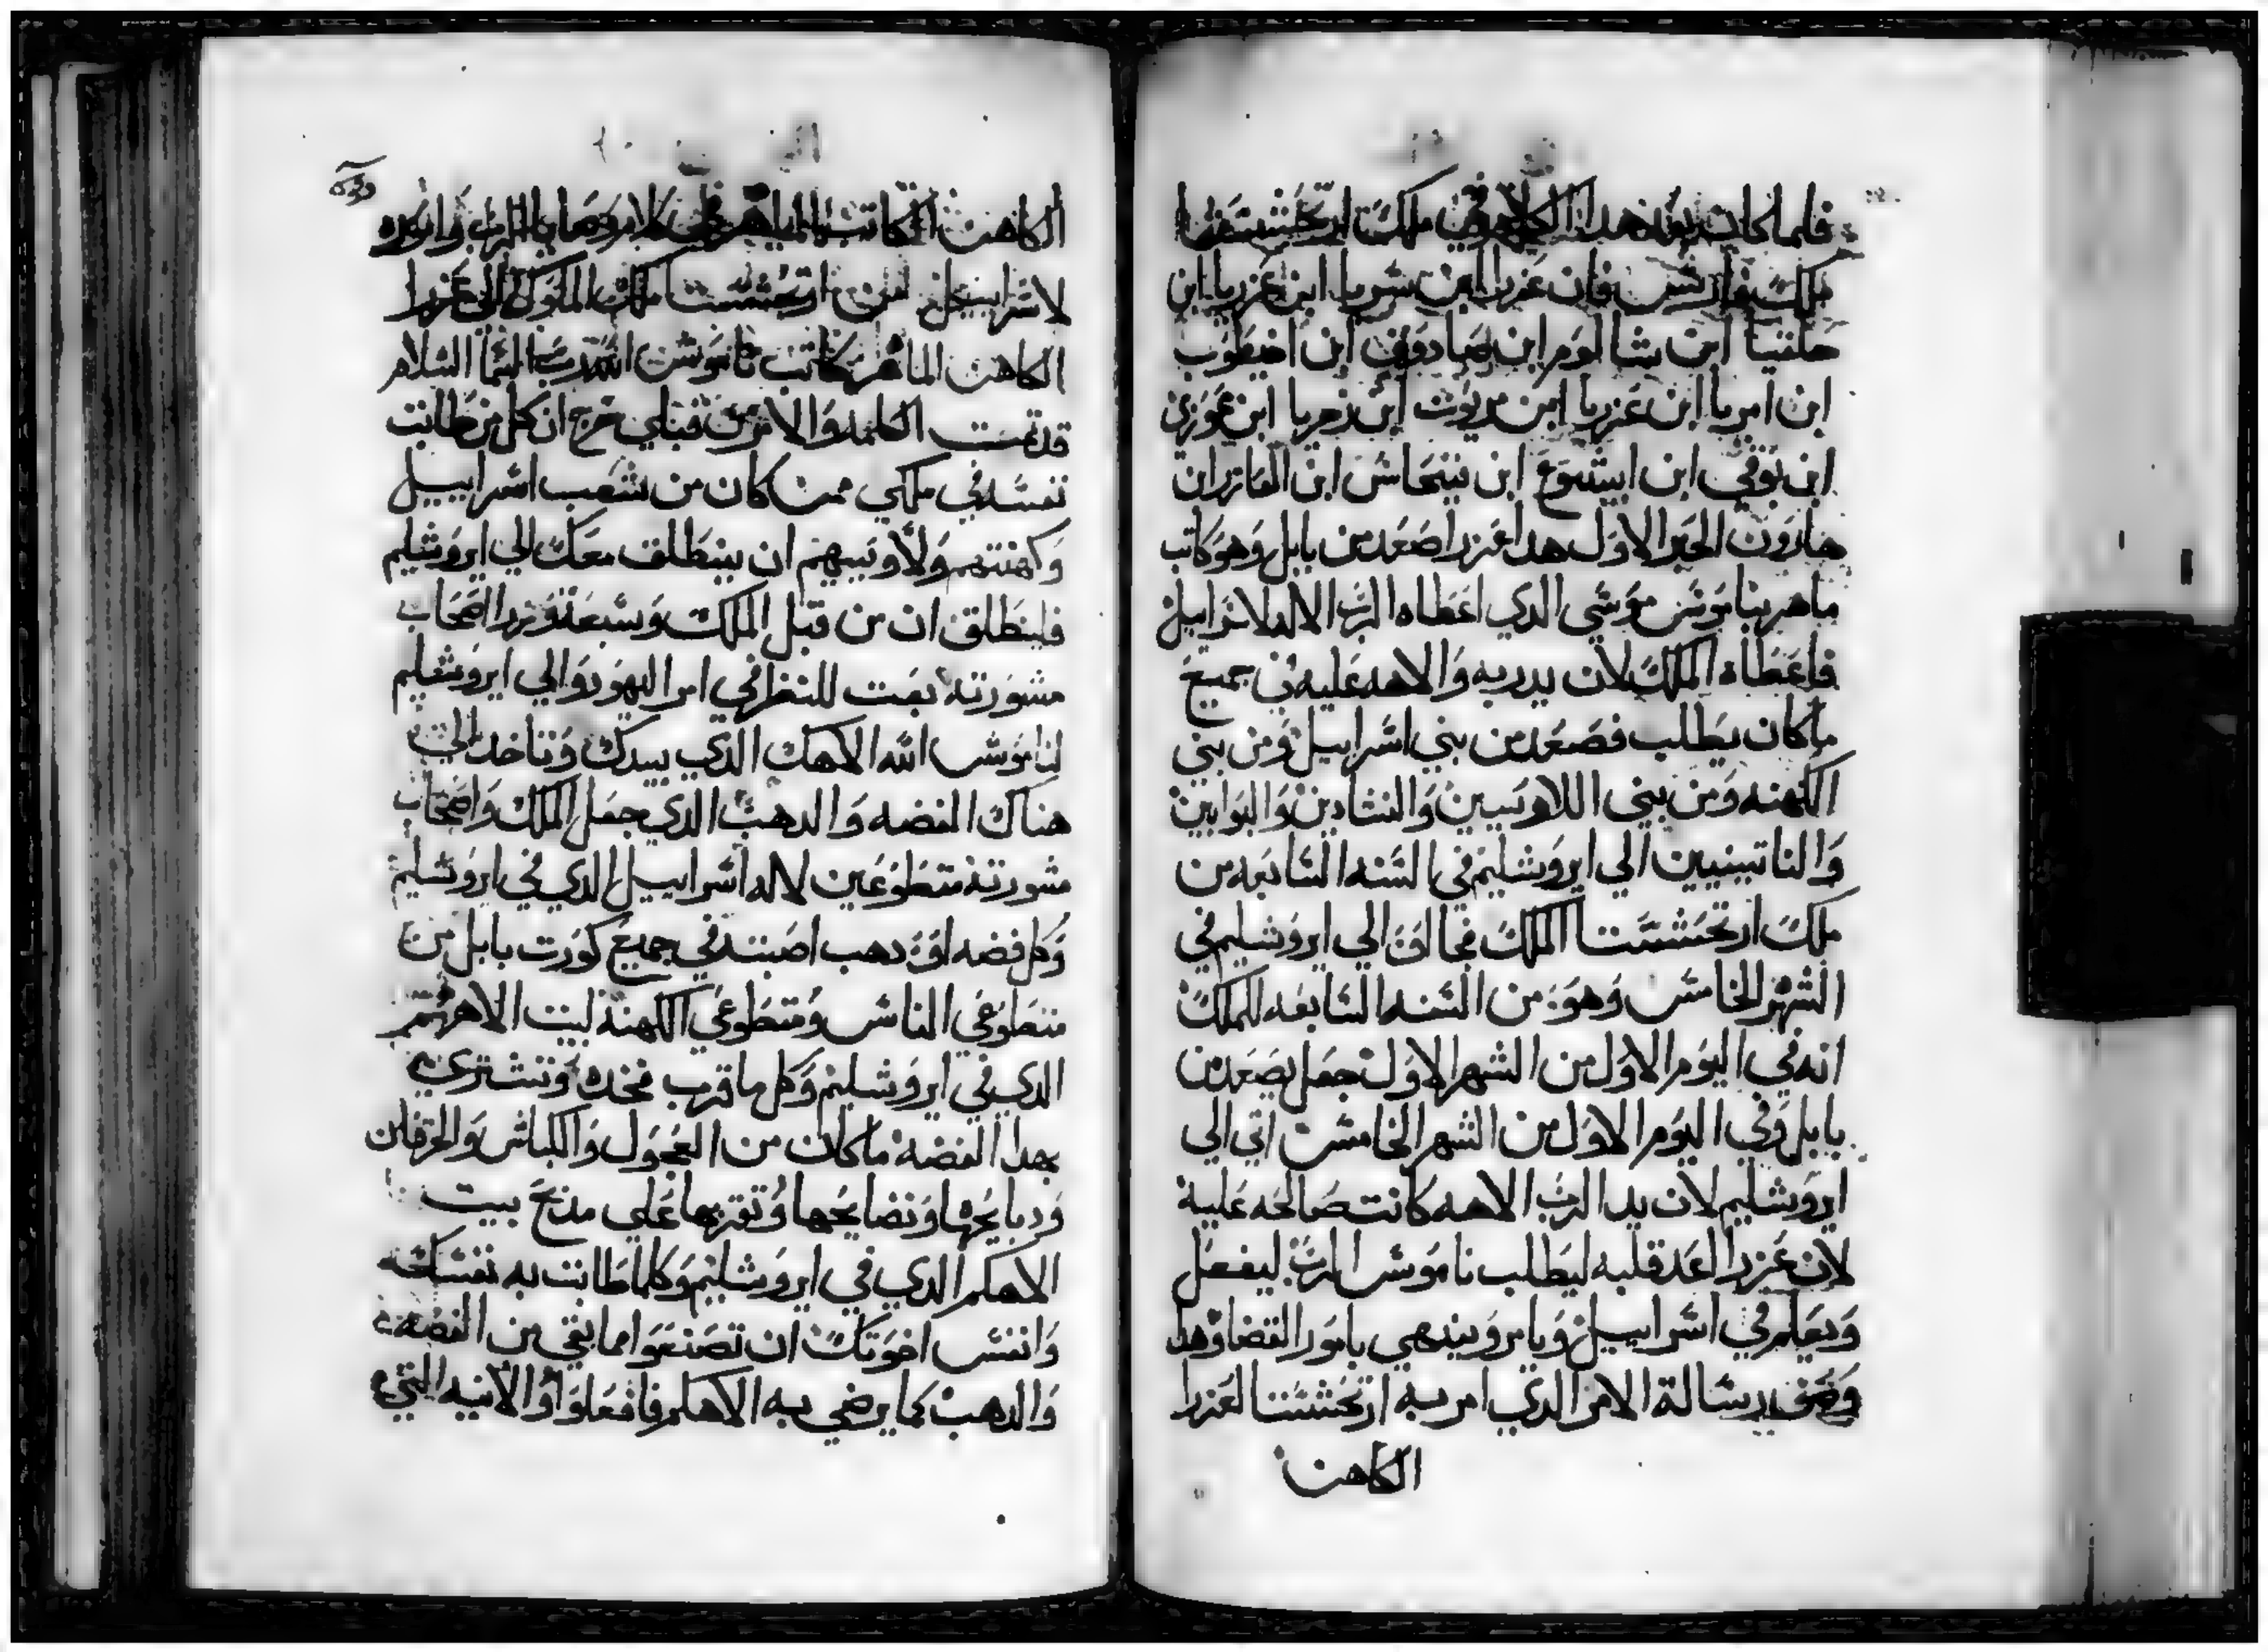 فلما كان بعد هدا الكلام في ملك ارتحششتا
ملك فارس فان عزرا ابن شريا ابن عزريا ابن
حلقيا ابن شالوم ابن صادوق ابن اخيطوب
ابن امريا ابن عزريا ابن مريوث ابن زحريا ابن عوزي
ابن بوقي ابن ابيشوع ابن فينحاس ابن العازر ابن
هارون الحبر الاول هدا عزرا صعد من بابل وهو كاتب
ماهر بناموس موسى الدي اعطاه الرب الاله لاسراييل
فاعطاه الملك لان يد ربه والاهه عليه في جميع
ما كان يطلب فصعد من بني اسراييل ومن بني
الكهنه ومن بني اللاويين والنشادين والبوابين
والناتينيين الي ايروشليم في السنه السابعه من
ملك ارتحششتا الملك فجا الي ايروشليم في
الشهر الخامس وهو من السنه السابعه للملك
انه في اليوم الاول من الشهر الاول جعل يصعد من
بابل وفي اليوم الاول من الشهر الخامس اتي الي
ايروشليم لان يد الرب الاهه كانت صالحه عليه
لان عزرا اعد قلبه ليطلب ناموس الرب ليفعل
ويعلم في اسراييل ويامر وينهي بامور القضا وهدا
وصف رسالة الامر الدي امر به ارتحششتا لعزرا
الكاهن
الكاهن الكاتب الماهر في كلام وصايا الرب واموره
لاسراييل من ارتحششتا ملك الملوك الي عزرا
الكاهن الماهر كاتب ناموس الله رب السما السلام
قد تمت الكلمه والامر من قبلي خرج ان كل من طابت
نفسه في ملكي ممن كان من شعب اسراييل
وكهنتهم ولاويبيهم ان ينطلق معك الي ايروشليم
فلينطلق ان من قبل الملك وسبعة وزرا اصحاب
مشورته بعت للنظر في امر اليهود والي ايروشليم
لناموس الله الاهك الدي بيدك وتاخد الي
هناك الفضه والدهب الدي جعل الملك واصحاب
مشورته متطوعين لاله اسراييل الدي في ايروشليم
وكل فضه او دهب اصبته في جميع كورت بابل من
متطوعي الناس ومتطوعي الكهنه لبيت الاههم
الدي في ايروشليم وكل ما قرب فخده وتشتري
بهدا الفضه ما كان من العجول والكباش والخرفان
ودبايحها ونضايحها وتقربها علي مدبح بيت
الاهكم الدي في ايروشليم وكلما طابت به نفسك
وانفس اخوتك ان تصنعوا مما بقي من الفضه
والدهب كما يرضي به الاهكم فافعلوا والانيه التي